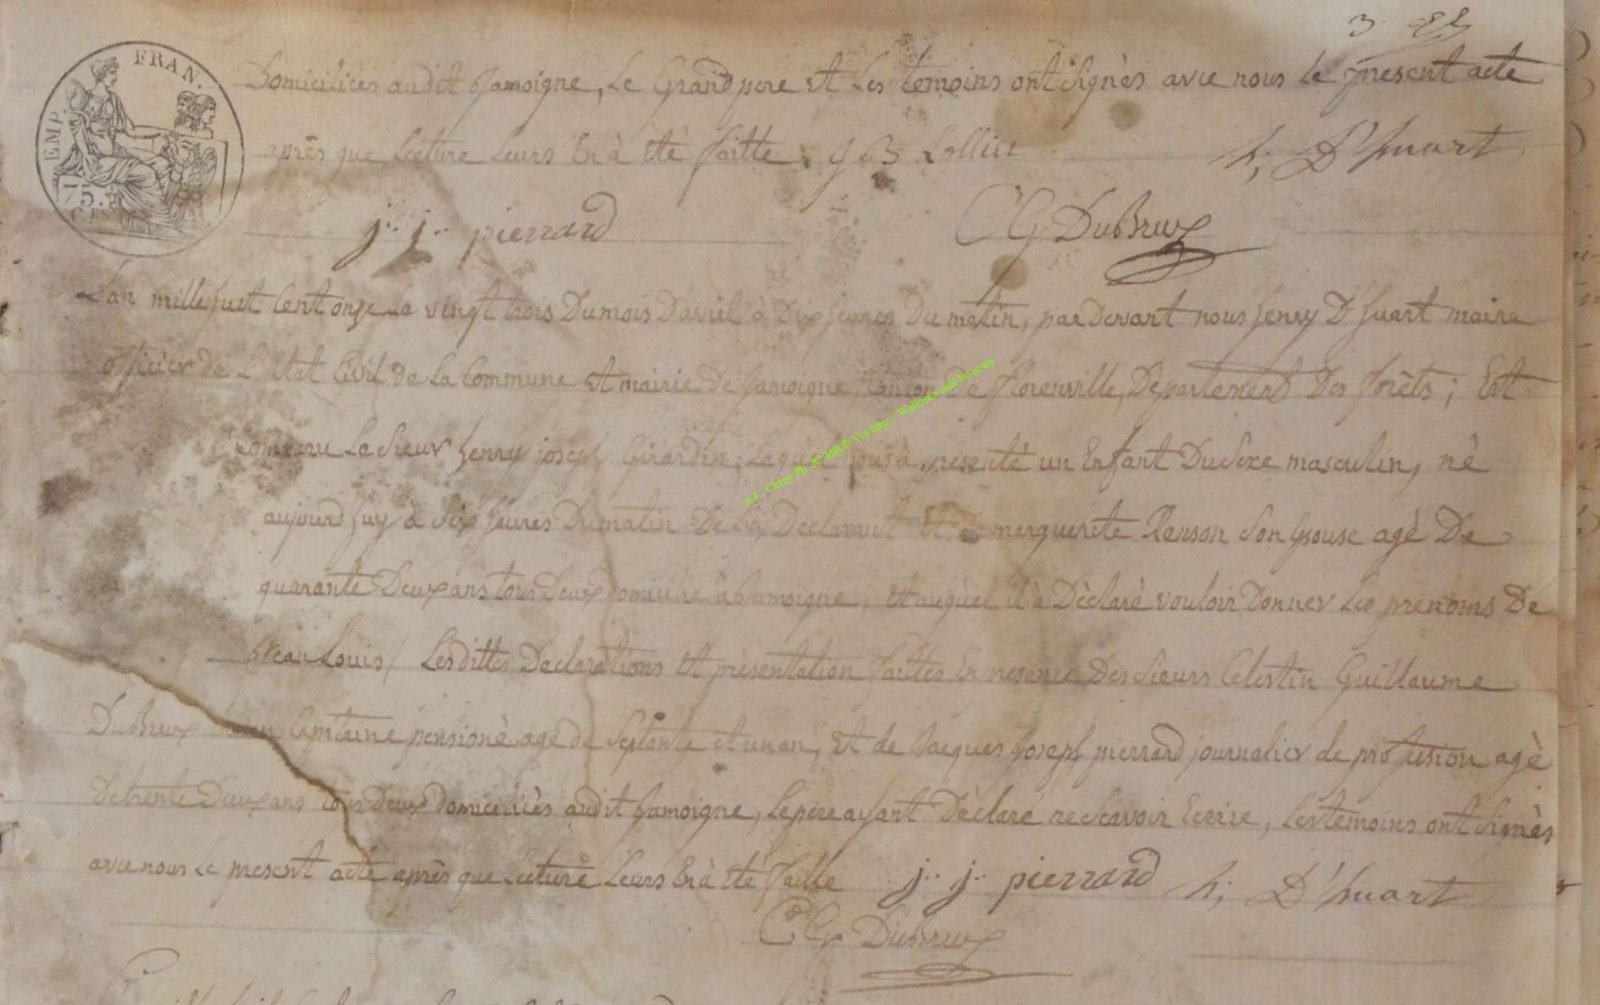 3
EMP. FRAN.
75.
C.ES
Domiciliès audit Jamoigne, Le Grand pere et Les temoins ont signès avec nous Le present acte
après que Lecture Leurs En à été faitte. Lollier h; D'huart
j.. j.. pierrard C G DuBrux
L'an mille huit Cent onze Le vingt trois Du mois D'avril à Dix heures Du matin, par Devant nous henry D'huart maire
officier de L'état Civil de La Commune et mairie De Jamoigne, Canton De florenville, Département Des forêts; Est
Comparu Le Sieur henry joseph Girardin, Lequel nous à présenté un Enfant Du Sexe masculin, né
aujourd'huy à Six heures Du matin De Luy Declarant et De marguerite Renson Son Epouse agé De
quarante Deux ans tous Deux Domicilié à Jamoigne, et auquel il à Déclaré vouloir Donner Les prenoms De
Jean Louis, Lesdittes Declarations et présentation faittes En presence Des Sieurs Celestin Guillaume
DuBrux ancien Capitaine pensioné agé de Septante et un an, et de Jacques Joseph pierrard journalier de profession agé
De trente Deux ans tous Deux domiciliès audit Jamoigne, Le pere ayant Déclaré ne Scavoir Ecrire, Les temoins ont Signès
avec nous Le present acte après que Lecture Leurs En à été faitte j.. j.. pierrard h; D'huart
C G DuBrux
A.E. Chiny Ph. JC-HH-F. Via http:// Wallonica.skill.be/genea